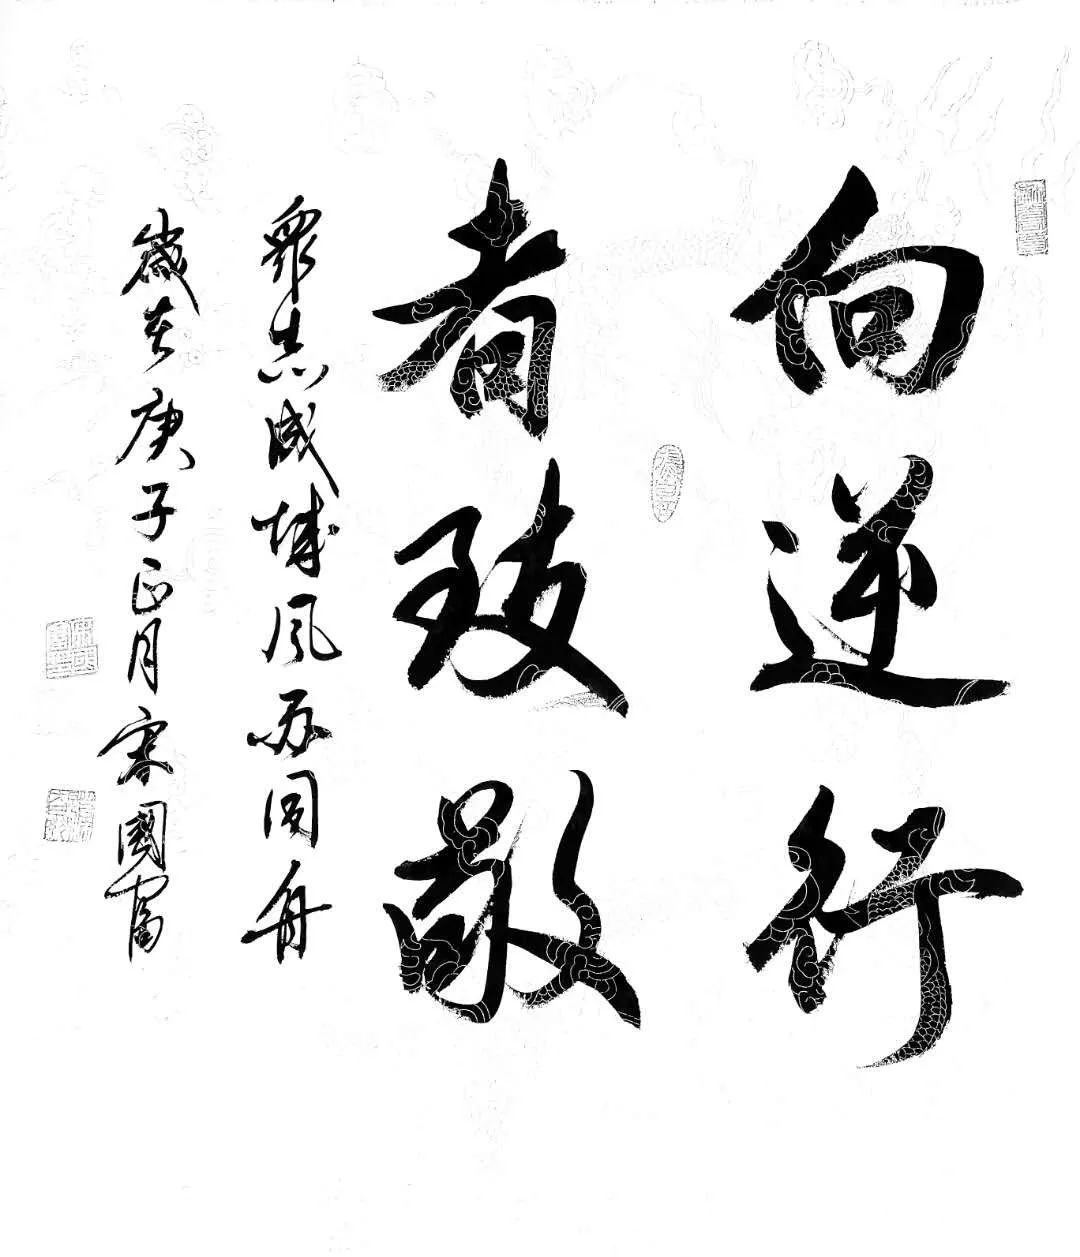 向逆行
者致敬
眾志成城風雨同舟
歲在庚子正月宋國富